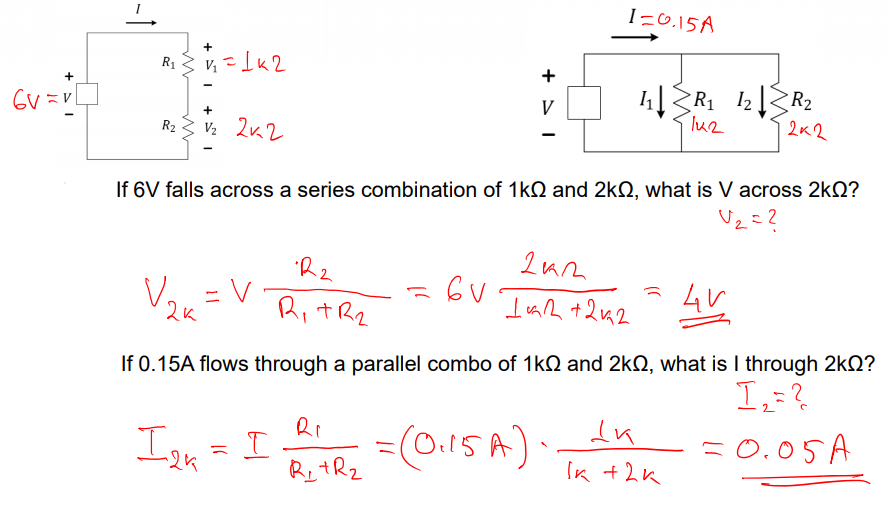 I
I = 0.15A
+
R₁ V₁ = 1kΩ
−
+
6V = V
−
+
R₂ V₂ 2kΩ
−
+
V
−
I₁ R₁ I₂ R₂
1kΩ 2kΩ
If 6V falls across a series combination of 1kΩ and 2kΩ, what is V across 2kΩ?
V₂ = ?
V₂ₖ = V R₂ / (R₁ + R₂) = 6V 2kΩ / (1kΩ + 2kΩ) = 4V
If 0.15A flows through a parallel combo of 1kΩ and 2kΩ, what is I through 2kΩ?
I₂ = ?
I₂ₖ = I R₁ / (R₁ + R₂) = (0.15A) · 1k / (1k + 2k) = 0.05A